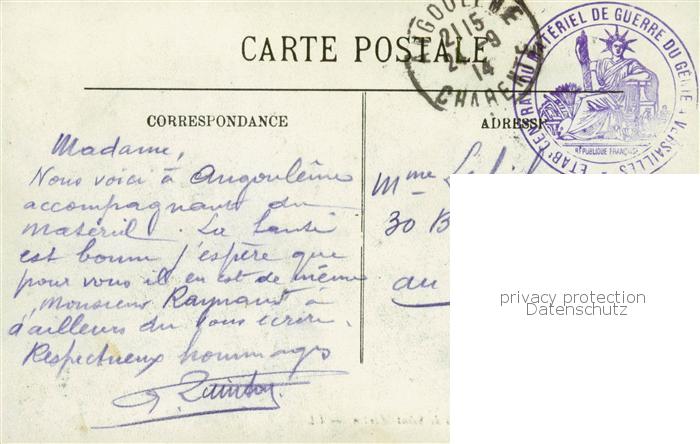 CARTE POSTALE
ANGOULEME
21 15
9
14
CHARENTE
ETABT CENTRAL DU MATÉRIEL DE GUERRE DU GÉNIE
VERSAILLES
RÉPUBLIQUE FRANÇAISE
CORRESPONDANCE
ADRESSE
Madame,
Nous voici à Angoulême
accompagnant du
matériel. La Santé
est bonne j'espère que
pour vous il en est de même
Monsieur Raynaud a
d'ailleurs du vous écrire.
Respectueux hommages
Mme
30 B
au
privacy protection
Datenschutz